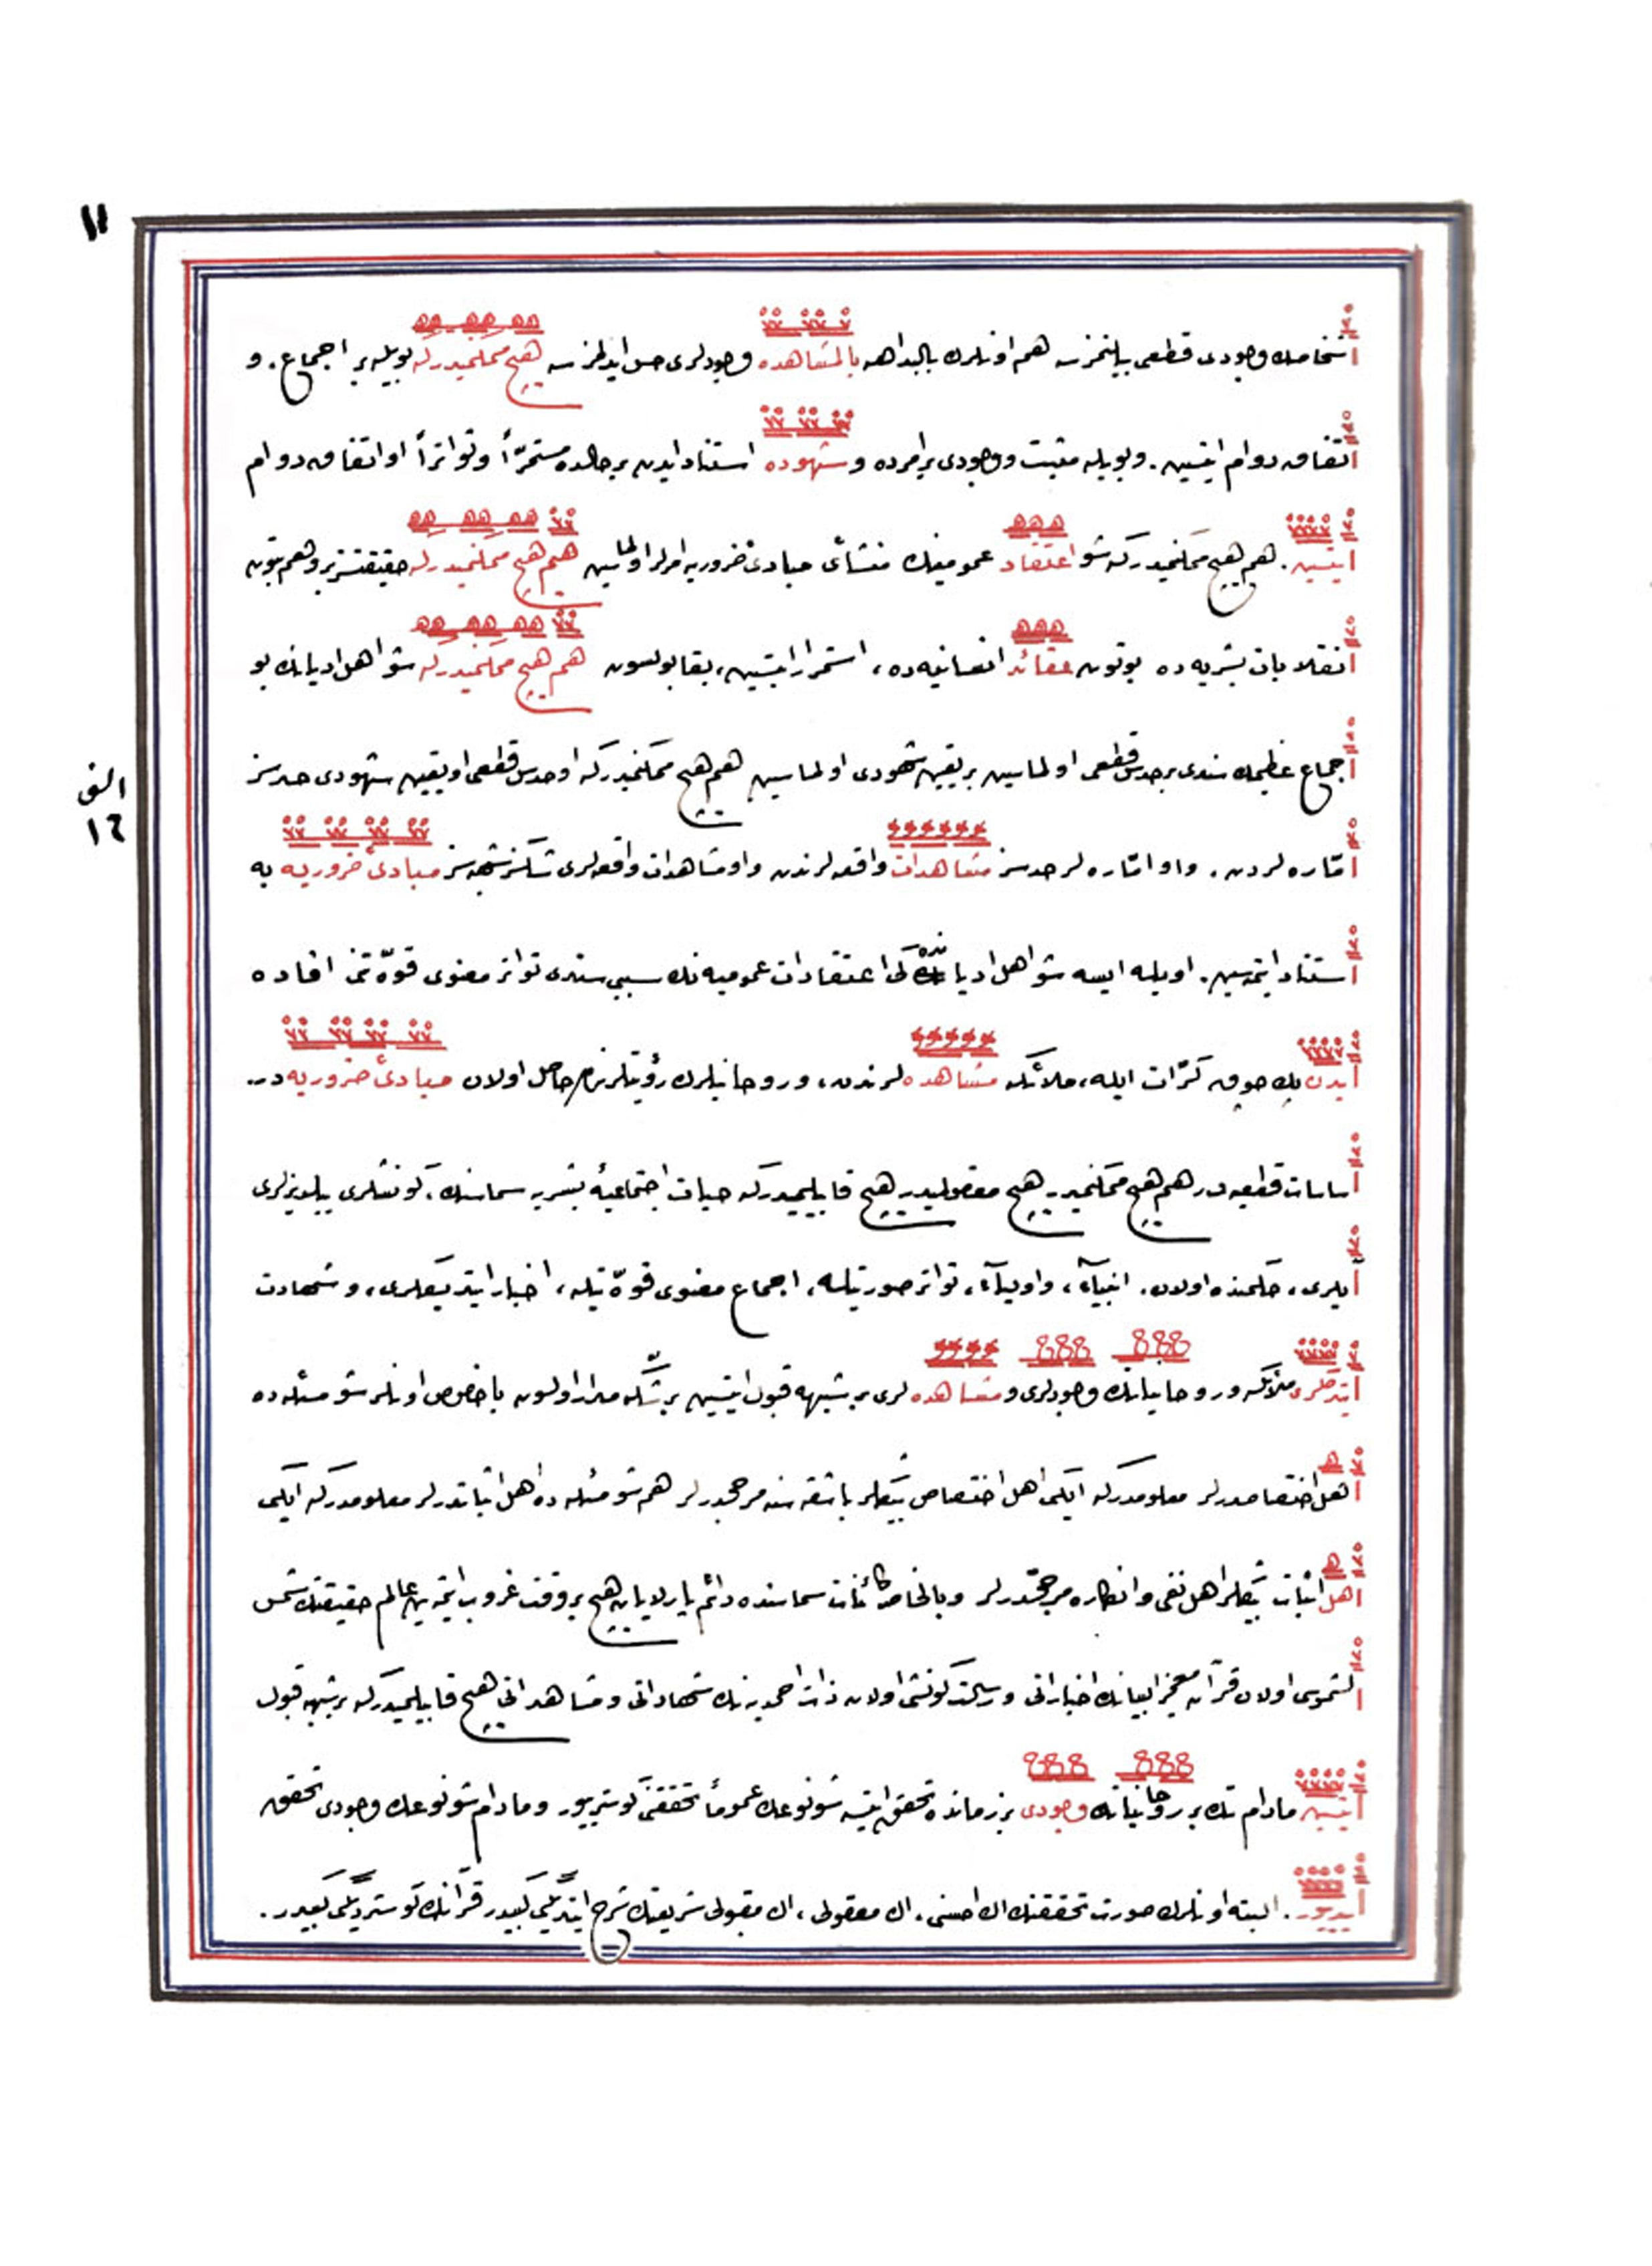 ١١
اشخاصك وجودى قطعى بيلنمزسه هم اونلرك بالبداهه بالمشاهده وجودلرى حس ايدلمزسه هيچ ممكنميدركه بويله بر اجماع. و
اتفاق دوام ايتسين. وبويله مثبت ووجودى برامرده و شهوده استناد ايدن برحالده مستمرّاً وتواتراً او اتفاق دوام
ايتسين. هم هيچ ممكنميدركه شو اعتقاد عمومينك منشأى مبادئ ضروريه امرلر اولماسين هم هيچ ممكنميدركه حقيقتسز بر وهم بتون
انقلابات بشريه ده بوتون عقائد انسانيه ده، استمرار ايتسين، بقا بولسون هم هيچ ممكنميدركه شو اهل اديانك بو
اجماع عظيمك سندى برحدس قطعى اولماسين بر يقين شهودى اولماسين هم هيچ ممكنميدركه او حدس قطعى او يقين شهودى حدسز
الف
١٦
امّاره لردن. و او امّاره لر حدسز مشاهدات واقعه لرندن و او مشاهدات واقعه لرى شكسز شبهه سز مبادئ ضروريه يه
استناد ايتمه سين. اويله ايسه شو اهل اديانده كى اعتقادات عموميه نك سببى سندى تواتر معنوى قوّتنى افاده
ايدن پك چوق كرّات ايله، ملائكه مشاهده لرندن، وروحانيلرك رؤيتلرندن حاصل اولان مبادئ ضروريه در.
اساسات قطعيه در هم هيچ ممكنميدر هيچ معقولميدر هيچ قابليميدركه حيات اجتماعيۀ بشريه سماسنك، كونشلرى ييلديزلرى
آيلرى، حكمنده اولان. انبيآء، واوليآء، تواتر صورتيله، اجماع معنوى قوّتيله، اخبار ايتديكلرى، و شهادت
ايتدكلرى ملائكه و روحانياتك وجودلرى و مشاهده لرى بر شبهه قبول ايتسين بر شكّه مدار اولسون باخصوص اونلر شو مسئله ده
اهل اختصاصدرلر معلومدركه ايكى اهل اختصاص بيكلر باشقه سنه مرجحدرلر هم شو مسئله ده اهل اثباتدرلر معلومدركه ايكى
اهل اثبات بيكلر اهل نفى وانكاره مرجحدرلر وبالخاصه كائنات سماسنده دائم پارلايان هيچ بر وقت غروب ايتمه ين عالم حقيقتك شمس
الشموسى اولان قرآن معجز البيانك اخباراتى و رسالت كونشى اولان ذات احمديه نك شهاداتى و مشاهداتى هيچ قابليميدركه بر شبهه قبول
ايتسين مادام تك بر روحانياتك وجودى بر زمانده تحقق ايتسه شو نوعك عموماً تحققنى كوستريور و مادام شو نوعك وجودى تحقق
ايديور. البته اونلرك صورت تحققنك اك احسنى، اك معقولى، اك مقبولى شريعتك شرح ايتديكى كبيدر قرآنك كوسترديكى كبيدر.